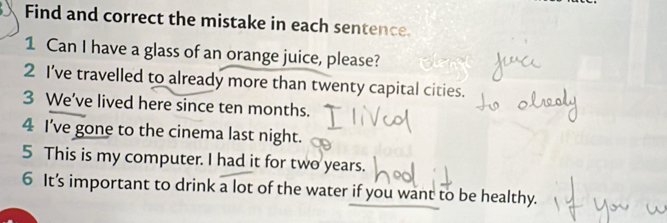 Find and correct the mistake in each sentence.
1 Can I have a glass of an orange juice, please? juice
2 I've travelled to already more than twenty capital cities. to already
3 We've lived here since ten months. I lived
4 I've gone to the cinema last night. go
5 This is my computer. I had it for two years. had it
6 It's important to drink a lot of the water if you want to be healthy. if you w